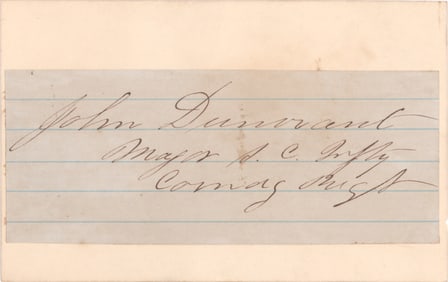 John Dunovant
Major S. C. Infty
Comdg Regt